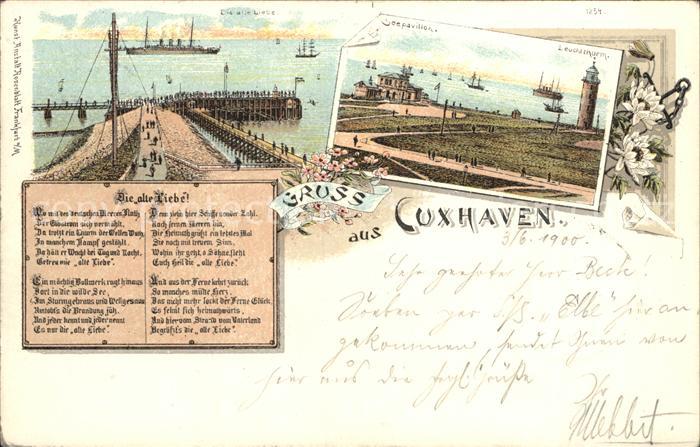 Die alte Liebe.
1254.
Seepavillon.
Leuchtthurm.
Kunst-Anstalt Rosenblatt, Frankfurt a/M.
Die „alte Liebe“!
Wo mit des deutschen Meeres
Der Elbstrom sich vermählt,
Da trotzt ein Thurm der Wellen Wuth
In manchem Kampf gestählt.
Da hält er Wacht bei Tag und Nacht,
Getreu wie „alte Liebe“.
Ein mächtig Bollwerk ragt hinaus
Fort in die wilde See,
Im Sturmgebraus und Wellen
die Brandung jäh.
Und jeder kennt und jeder nennt
Es nur die „alte Liebe“.
Dem zieh'n hier Schiffe sonder Zahl.
Nach fernen Meeren hin,
Die Heimath grüßt ein letztes Mal
Sie noch mit treuem Sinn.
Wohin ihr geht, o Söhne, zieht
Euch Heil die „alte Liebe“.
Und aus der Ferne kehrt zurück
So manches müde Herz,
Das nicht mehr lockt der Ferne Glück,
Es sehnt sich heimathwärts.
Und hier vom Strand vom Vaterland
Begrüßt's die „alte Liebe“.
GRUSS
aus
CUXHAVEN.
3/6. 1900.
Sehr geehrter Herr Beck!
Soeben per S/S. „Elbe“ hier an-
gekommen, sendet Ihnen von
hier aus die Grüße
Ihr